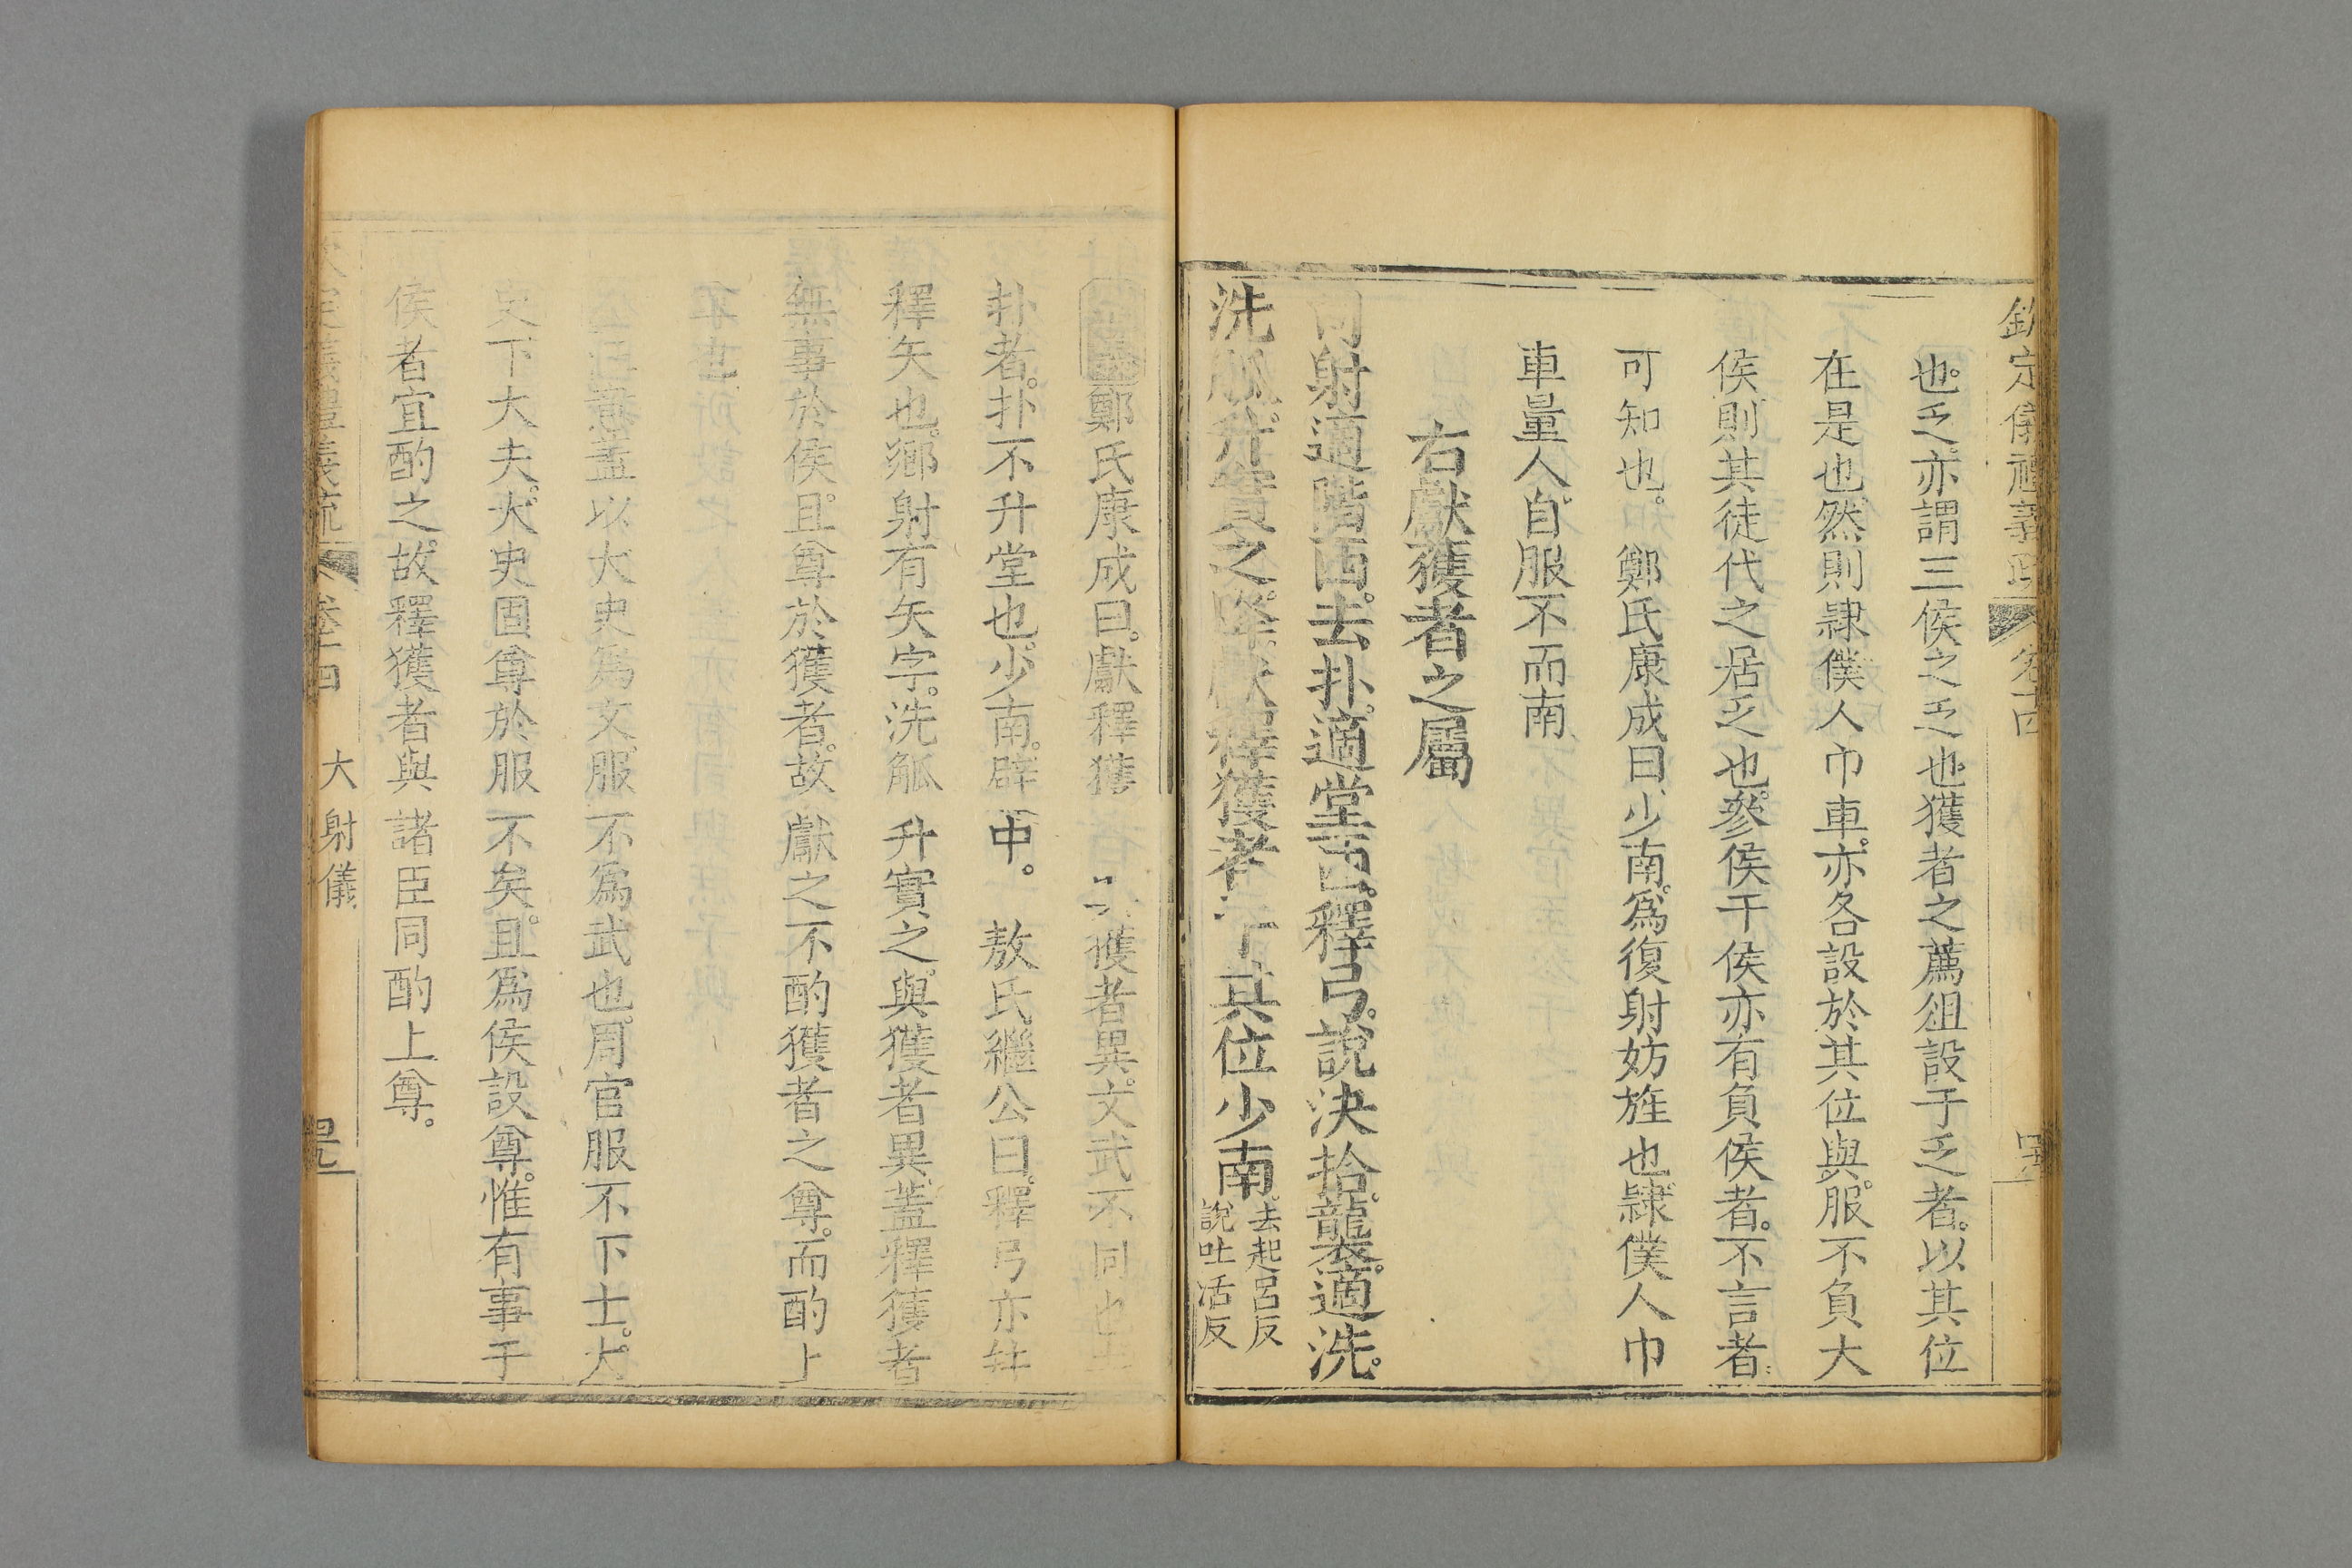 欽定儀禮義疏 卷十四
也。乏。亦謂三侯之乏也。獲者之薦俎設于乏者。以其位
在是也。然則隷僕人巾車。亦各設於其位與。服不負大
侯。則其徒代之居乏也。參侯干侯亦有負侯者。不言者。
可知也。 鄭氏康成曰。少南。爲復射妨旌也。隷僕人巾
車量人。自服不而南
右獻獲者之屬
司射適階西。去扑。適堂西。釋弓。說決拾。襲。適洗。
洗觚。升實之。降。獻釋獲者于其位少南。
去起呂反
說吐活反
鄭氏康成曰。獻釋獲 獲者異。文武不同也。去
扑者。扑不升堂也。少南。辟中。 敖氏繼公曰。釋弓亦并
釋矢也。鄉射有矢字。洗觚升實之。與獲者異。蓋釋獲者
無事於侯。且尊於獲者。故獻之不酌獲者之尊。而酌上
尊也
意蓋以大史爲文。服不爲武也。周官服不下士。大
史下大夫。大史固尊於服不矣。且爲侯設尊。惟有事于
侯者宜酌之。故釋獲者與諸臣同酌上尊。
欽定儀禮義疏 卷十四 大射儀